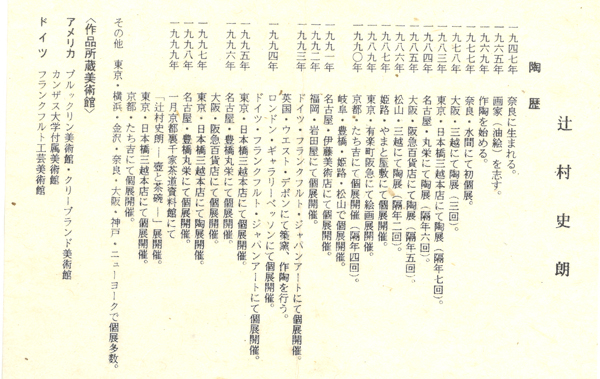 辻村史朗
陶歴
一九四七年 奈良に生まれる。
一九六五年 画家（油絵）を志す。
一九六九年 作陶を始める。
一九七七年 奈良・水間にて初個展。
一九七八年 大阪・三越にて陶展（三回）。
一九八三年 東京・日本橋三越本店にて陶展（隔年七回）。
一九八四年 名古屋・丸栄にて陶展（隔年六回）。
一九八五年 大阪・阪急百貨店にて陶展（隔年五回）。
一九八六年 松山・三越にて陶展（隔年二回）。
一九八七年 姫路・やまと屋敷にて個展開催。
一九八九年 東京・有楽町阪急にて絵画展開催。
一九九〇年 京都・たち吉にて個展開催（隔年四回）。
岐阜・豊橋・姫路・松山で個展開催。
一九九一年 名古屋・伊藤美術店にて個展開催。
一九九二年 福岡・岩田屋にて個展開催。
一九九三年 ドイツ・フランクフルト・ジャパンアートにて個展開催。
英国・ウエスト・デボンにて築窯、作陶を行う。
一九九四年 ロンドン・ギャラリーベッソンにて個展開催。
ドイツ・フランクフルト・ジャパンアートにて個展開催。
一九九五年 東京・日本橋三越本店にて個展開催。
一九九六年 名古屋・豊橋丸栄にて個展開催。
大阪・阪急百貨店にて個展開催。
一九九七年 東京・日本橋三越本店にて陶展開催。
一九九八年 名古屋・豊橋丸栄にて個展開催。
一九九九年 一月京都裏千家茶道資料館にて
「辻村史朗―壺と茶碗―」展開催。
東京・日本橋三越本店にて個展開催。
京都・たち吉にて個展開催。
その他 東京・横浜・金沢・奈良・大阪・神戸・ニューヨークで個展多数。
〈作品所蔵美術館〉
アメリカ ブルックリン美術館・クリーブランド美術館
カンザス大学付属美術館
ドイツ フランクフルト工芸美術館